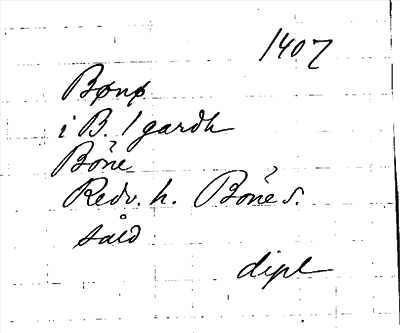 1407
Bønø
i B. / gardh
Böne
Redv. h. Böne s.
såld
dipl